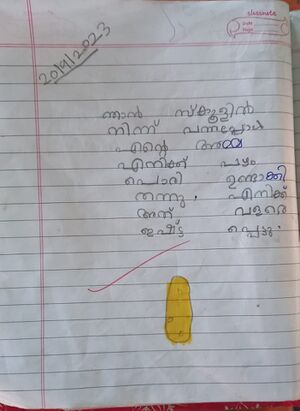 classmate
Date
Page
20/9/2023
ഞാൻ സ്ക്കൂളിൽ
നിന്ന് വന്നപ്പോൾ
എന്റെ അമ്മ
എനിക്ക് പഴം
പൊരി ഉണ്ടാക്കി
തന്നു. എനിക്ക്
അത് വളരെ
ഇഷ്ട പ്പെട്ടു.